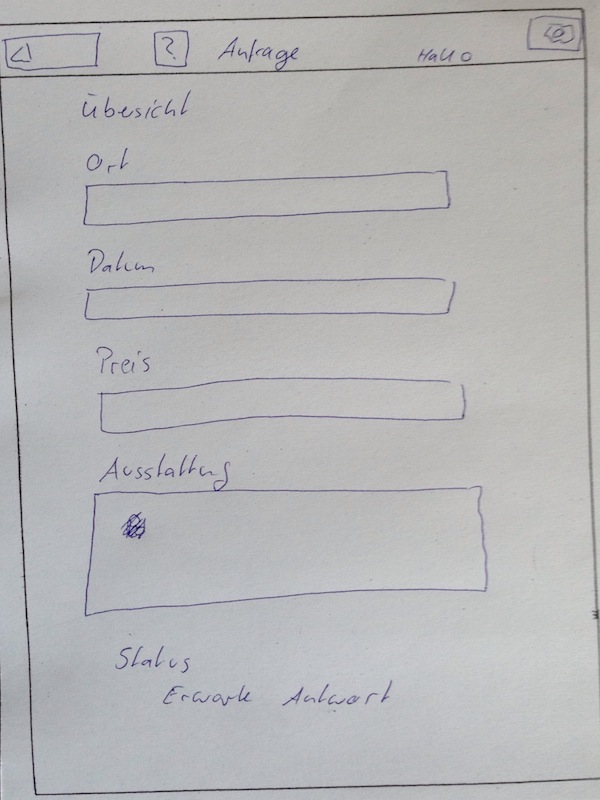 ? Anfrage Hallo
Übersicht
Ort
Datum
Preis
Ausstattung
Status
Erwarte Antwort